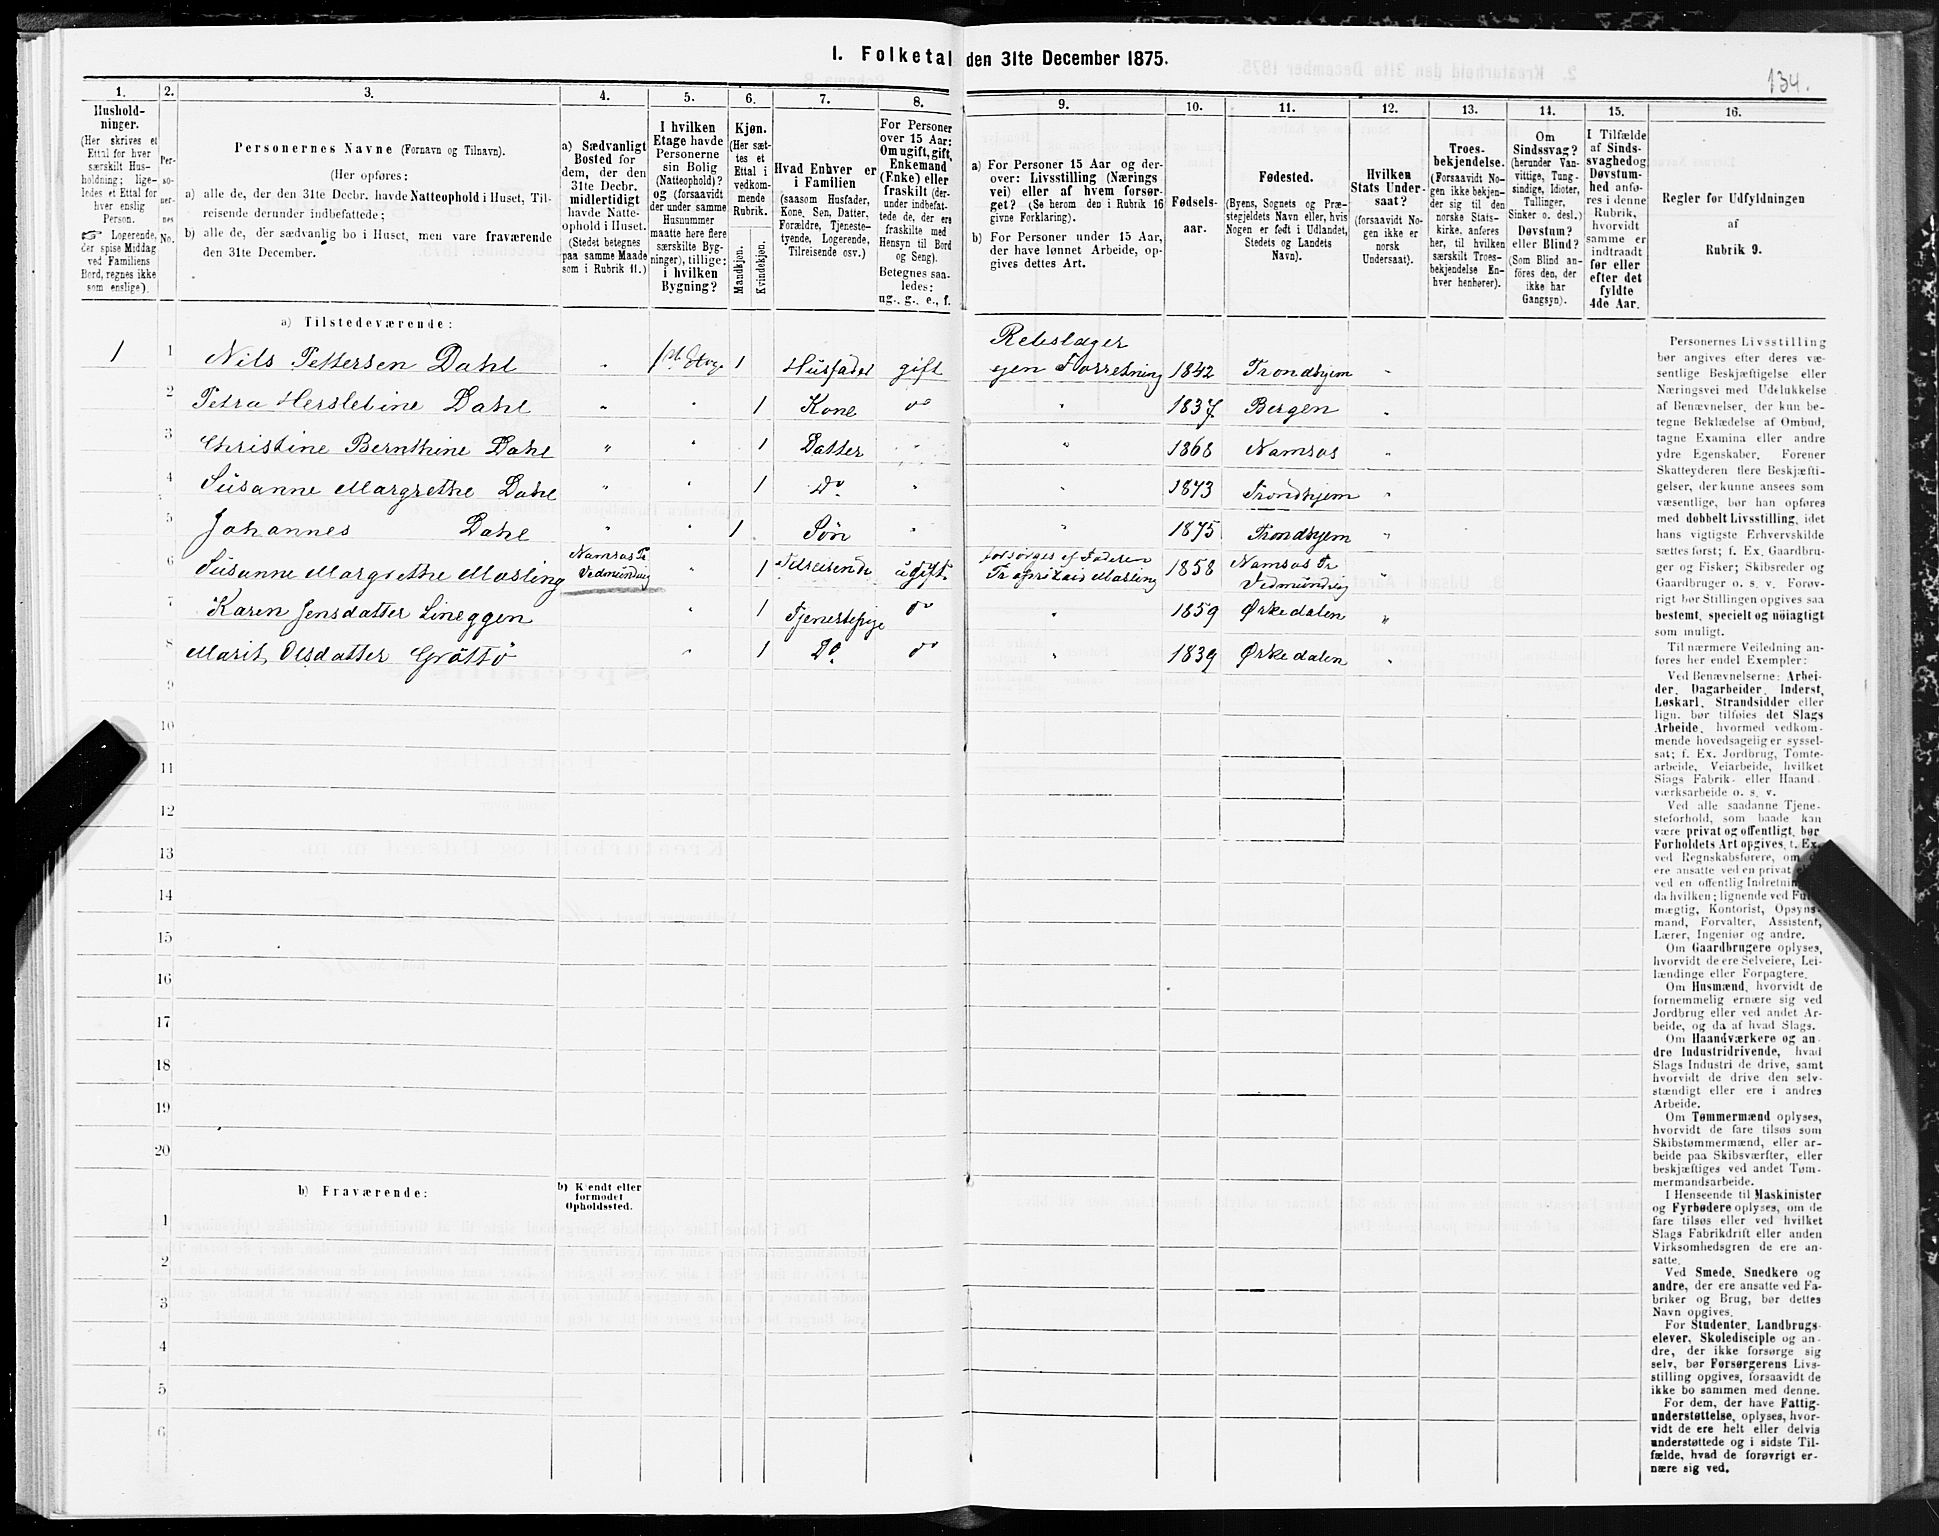 I. Folketal den 31te December 1875.
134.
1.
Hushold-
ninger.
(Her skrives et
Ettal for hver
særskilt Hus-
holdning; lige-
ledes et Ettal for
hver enslig
Person.
☞ Logerende,
der spise Middag
ved Familiens
Bord, regnes ikke
som enslige).
2.
Per-
so-
ner-
nes
No.
3.
Personernes Navne (Fornavn og Tilnavn).
(Her opføres:
a) alle de, der den 31te Decbr. havde Natteophold i Huset, Til-
reisende derunder indbefattede;
b) alle de, der sædvanlig bo i Huset, men vare fraværende
den 31te December.
4.
a) Sædvanligt
Bosted for
dem, der den
31te Decbr.
midlertidigt
havde Natte-
ophold i Huset.
(Stedet betegnes
paa samme Maade
som i Rubrik 11.)
5.
I hvilken
Etage havde
Personerne
sin Bolig
(Natteophold)?
og (forsaavidt
der under samme
Husnummer
maatte høre flere
særskilte Byg-
ninger), tillige:
i hvilken
Bygning?
6.
Kjøn.
(Her sæt-
tes et
Ettal i
vedkom-
mende
Rubrik.
Mandkjøn.
Kvindekjøn.
7.
Hvad Enhver er
i Familien
(saasom Husfader,
Kone, Søn, Datter,
Forældre, Tjeneste-
tyende, Logerende,
Tilreisende osv.)
8.
For Personer
over 15 Aar:
Om ugift, gift,
Enkemand
(Enke) eller
fraskilt (der-
under indbefat-
tede de, der ere
fraskilte med
Hensyn til Bord
og Seng).
Betegnes saa-
ledes:
ug., g., e., f.
9.
a) For Personer 15 Aar og der-
over: Livsstilling (Nærings
vei) eller af hvem forsør-
get? (Se herom den i Rubrik 16
givne Forklaring).
b) For Personer under 15 Aar,
der have lønnet Arbeide, op-
gives dettes Art.
10.
Fødsels-
aar.
11.
Fødested.
(Byens, Sognets og Præ-
stegjeldets Navn eller, hvis
Nogen er født i Udlandet,
Stedets og Landets
Navn).
12.
Hvilken
Stats Under-
saat?
(forsaavidt No-
gen ikke er
norsk
Undersaat).
13.
Troes-
bekjendelse.
(Forsaavidt No-
gen ikke bekjen-
der sig til den
norske Stats-
kirke, anføres
her, til hvilken
særskilt Troes-
bekjendelse En-
hver henhører).
14.
Om
Sindssvag?
(herunder Van-
vittige, Tung-
sindige, Idioter,
Tullinger,
Sinker o. desl.)
Døvstum?
eller Blind?
(Som Blind an-
føres den, der
ikke har
Gangsyn).
15.
I Tilfælde
af Sinds-
svaghed og
Døvstum-
hed anfø-
res i denne
Rubrik,
hvorvidt
samme er
indtraadt
før eller
efter det
fyldte
4de Aar.
16.
Regler for Udfyldningen
af
Rubrik 9.
a) Tilstedeværende:
1 1 Nils Pettersen Dahl " 1ste Etage 1 Husfader gift Rebslager
egen Forretning 1842 Trondhjem "
2 Petra Herslebine Dahl " " 1 Kone do " 1837 Bergen "
3 Christine Bernthine Dahl " " 1 Datter " " 1868 Namsos "
4 Susanne Margrethe Dahl " " 1 Do " " 1873 Trondhjem "
5 Johannes Dahl " " 1 Søn " " 1875 Trondhjem "
6 Susanne Margrethe Masling Namsos Pr
Vedmündvig " 1 Tilreisende ugift forsørges af Faderen
1858 Namsos Pr
Vedmündvig "
7 Karen Jensdatter Lineggen " 1 Tjenestepige do " 1859 Ørkedalen "
8 Marit Olsdatter Gröttö " 1 Do do " 1839 Ørkedalen "
9
10
11
12
13
14
15
16
17
18
19
20
b) Fraværende:
b) Kjendt eller
formodet
Opholdssted.
1
2
3
4
5
6
Personernes Livsstilling
bør angives efter deres væ-
sentlige Beskjæftigelse eller
Næringsvei med Udelukkelse
af Benævnelser, der kun be-
tegne Beklædelse af Ombud,
tagne Examina eller andre
ydre Egenskaber. Forener
Skatteyderen flere Beskjæfti-
gelser, der kunne ansees som
væsentlige, bør han opføres
med dobbelt Livsstilling, idet
hans vigtigste Erhvervskilde
sættes først; f. Ex. Gaardbru-
ger og Fisker; Skibsreder og
Gaardbruger o. s. v. Forøv-
rigt bør Stillingen opgives saa
bestemt, specielt og nøiagtigt
som muligt.
Til nærmere Veiledning an-
føres her endel Exempler:
Ved Benævnelserne: Arbei-
der, Dagarbeider, Inderst,
Løskarl, Strandsidder eller
lign. bør tilføies det Slags
Arbeide, hvormed vedkom-
mende hovedsagelig er syssel-
sat; f. Ex. Jordbrug, Tomte-
arbeide, Veiarbeide, hvilket
Slags Fabrik- eller Haand-
værksarbeide o. s. v.
Ved alle saadanne Tjene-
steforhold, som baade kan
være privat og offentligt, bør
Forholdets Art opgives, f. Ex.
ved Regnskabsførere, om
ere ansatte ved en privat
ved en offentlig Indretning
da hvilken; lignende ved Ful
mægtig, Kontorist, Opsyns-
mand, Forvalter, Assistent,
Lærer, Ingeniør og andre.
Om Gaardbrugere oplyses,
hvorvidt de ere Selveiere, Lei-
lændinge eller Forpagtere.
Om Husmænd, hvorvidt de
fornemmelig ernære sig ved
Jordbrug eller ved andet Ar-
beide, og da af hvad Slags.
Om Haandværkere og an-
dre Industridrivende, hvad
Slags Industri de drive, samt
hvorvidt de drive den selv-
stændigt eller ere i andres
Arbeide.
Om Tømmermænd oplyses,
hvorvidt de fare tilsøs som
Skibstømmermænd, eller ar-
beide paa Skibsværfter, eller
beskjæftiges ved andet Tøm-
mermandsarbeide.
I Henseende til Maskinister
og Fyrbødere oplyses, om de
fare tilsøs eller ved hvilket
Slags Fabrikdrift eller anden
Virksomhedsgren de ere an-
satte.
Ved Smede, Snedkere og
andre, der ere ansatte ved Fa-
briker og Brug, bør dettes
Navn opgives.
For Studenter, Landbrugs-
elever, Skoledisciple og an-
dre, der ikke forsørge sig
selv, bør Forsørgerens Livs-
stilling opgives, forsaavidt de
ikke bo sammen med denne.
For dem, der have Fattig-
understøttelse, oplyses, hvor-
vidt de ere helt eller delvis
understøttede og i sidste Til-
fælde, hvad de forøvrigt er-
nære sig ved.